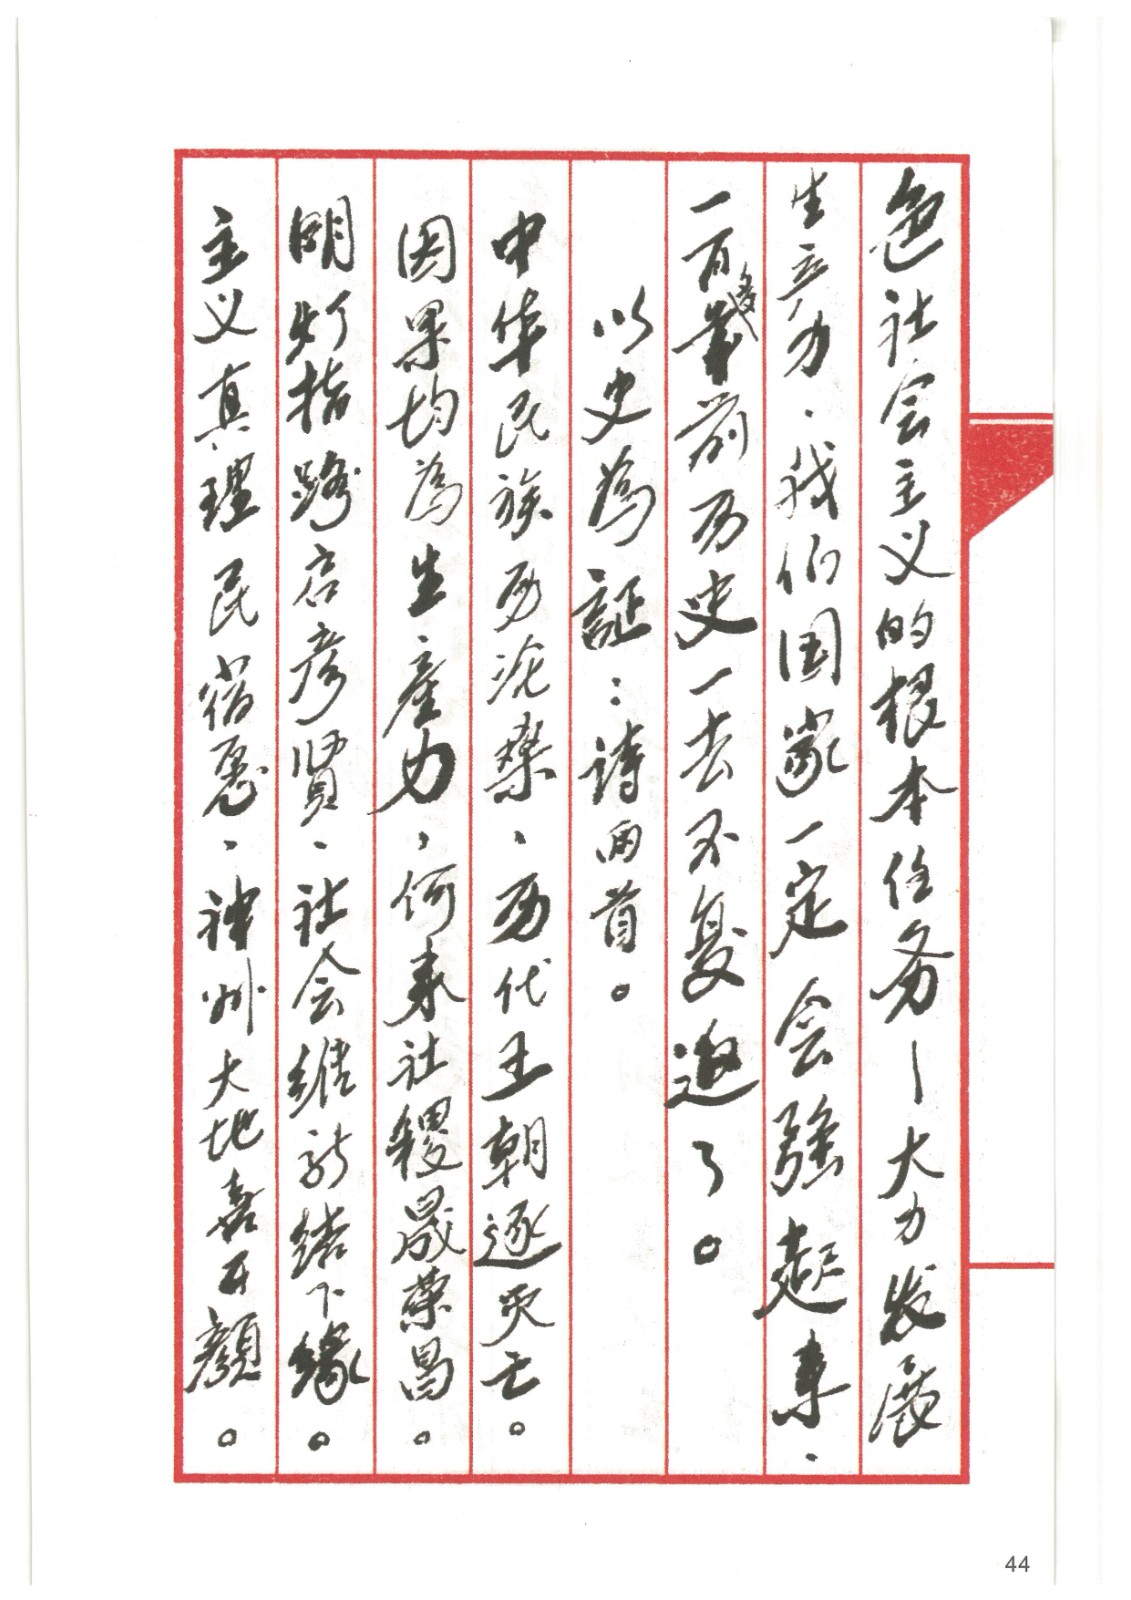 色社会主义的根本任务—大力发展
生产力，我们国家一定会强起来，
一百多年前历史一去不复返了。
以史為証：诗两首。
中华民族历沧桑，历代王朝逐灭亡。
因果均為生產力，何来社稷晟荣昌。
明灯指路启彦贤，社会维新结下缘。
主义真理民宿愿，神州大地喜开颜。
44